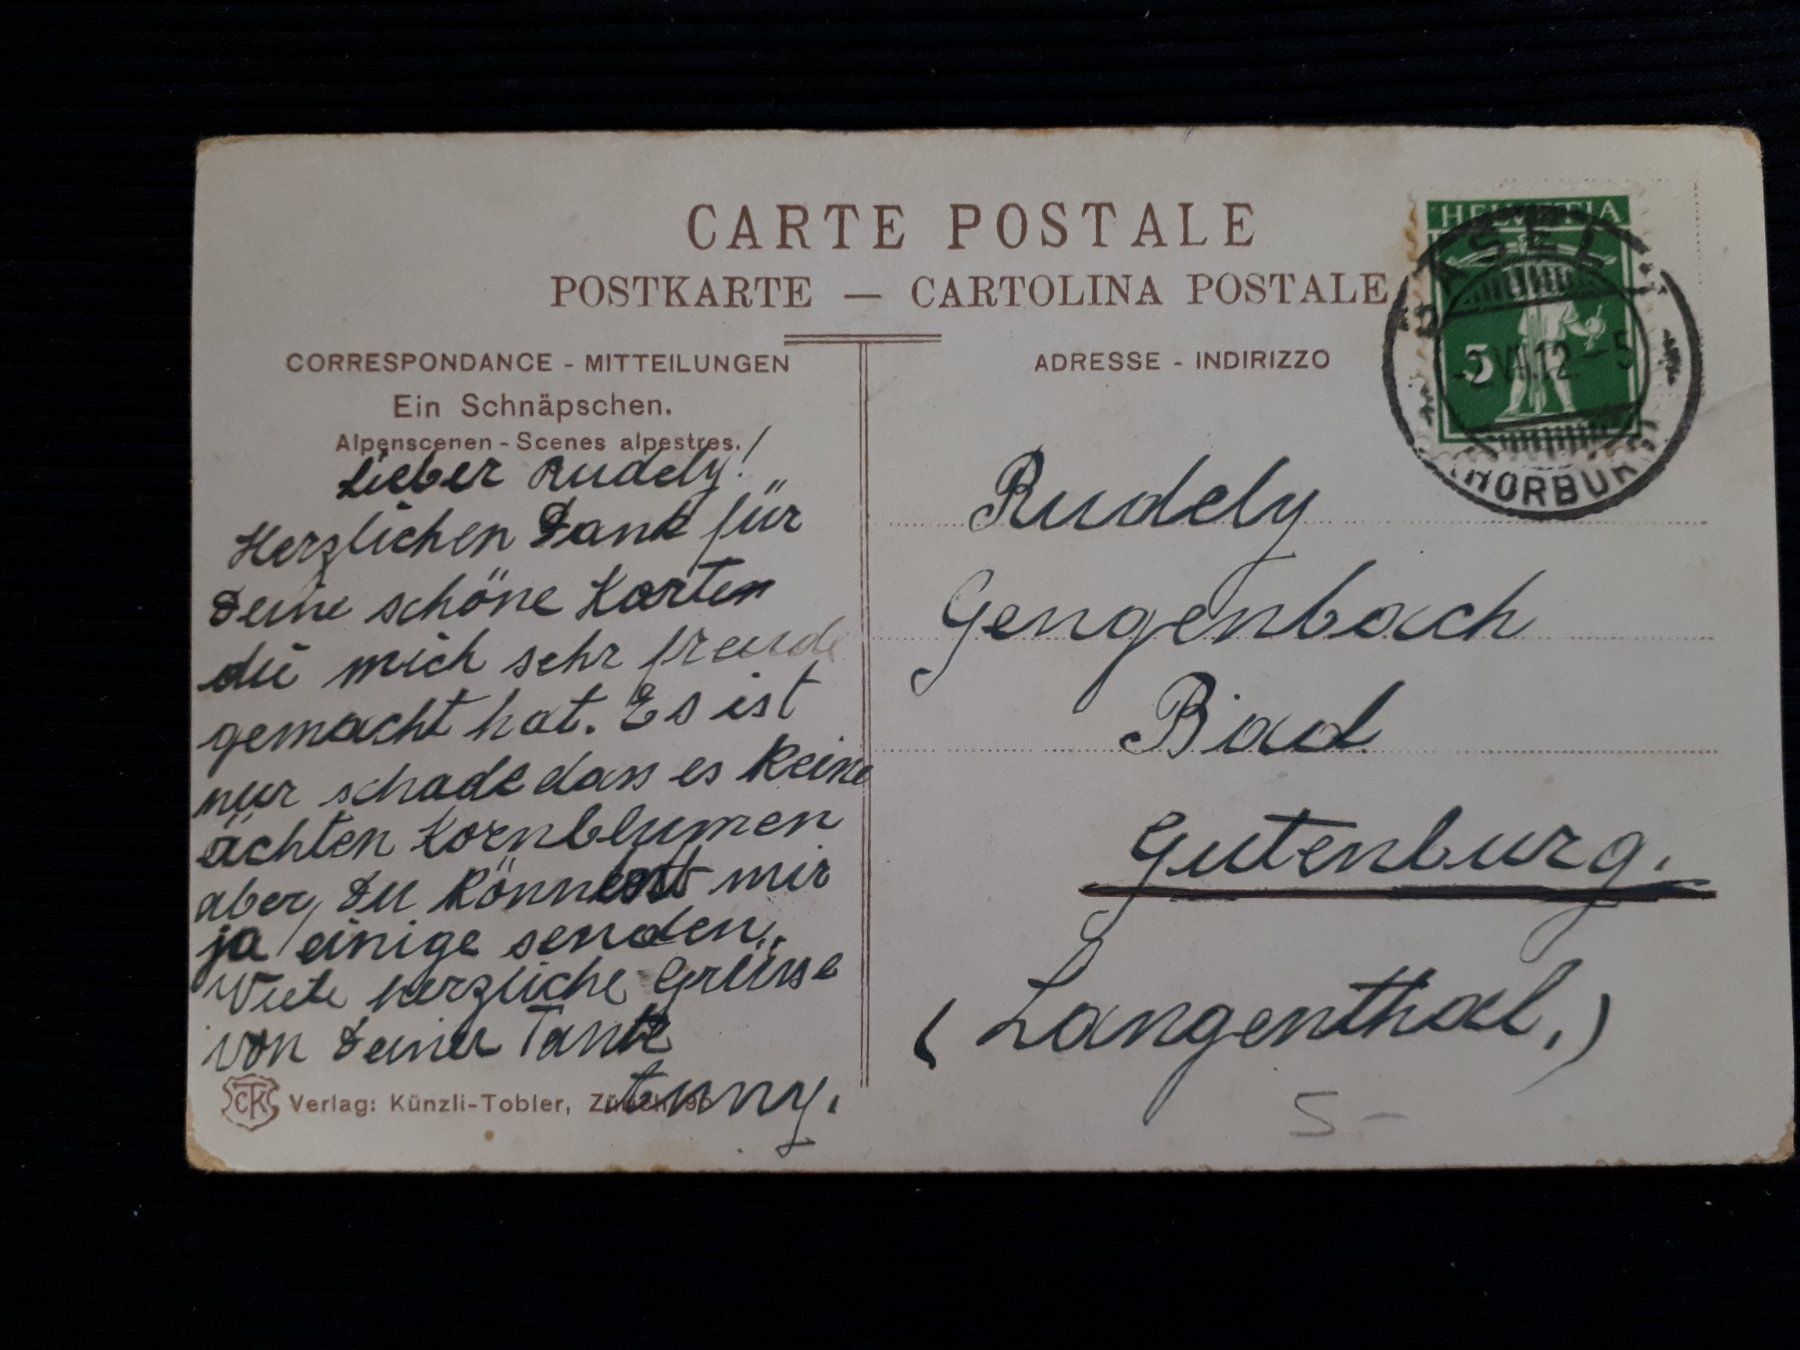 CARTE POSTALE
POSTKARTE — CARTOLINA POSTALE
CORRESPONDANCE - MITTEILUNGEN
Ein Schnäpschen.
Alpenscenen - Scenes alpestres.
Lieber Rudely!
Herzlichen Dank für
Deine schöne Karten
die mich sehr freude
gemacht hat. Es ist
nur schade dass es keine
ächten Kornblumen
aber, Du könntest mir
ja einige senden.
Viele herzliche Grüsse
von Deiner Tante
Verlag: Künzli-Tobler,
ADRESSE - INDIRIZZO
HELVETIA
5
BASEL
VII.12.-5
HORBURG
Rudely
Gengenbach
Bad
Gutenburg.
(Langenthal.)
5-